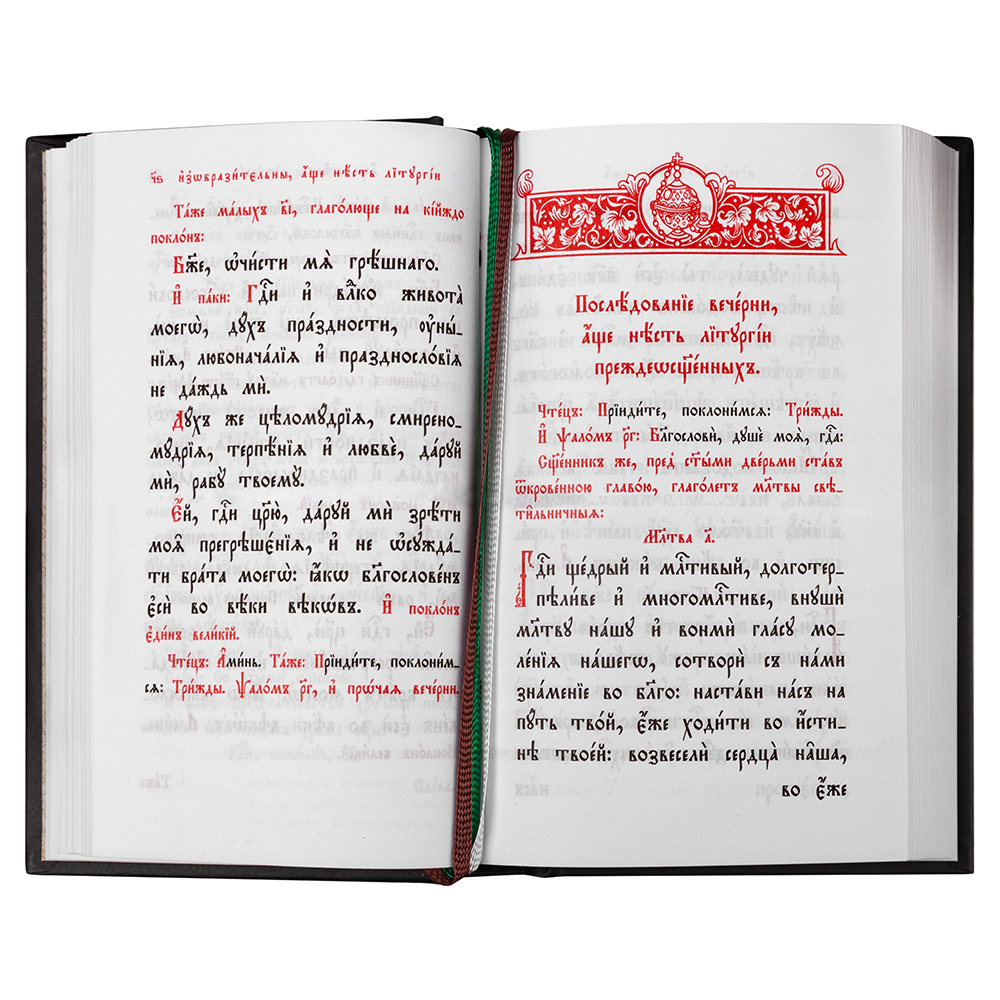 ч҃ѕ и҆зѡбрази́тельны, а҆́ще нѣ́сть лїтꙋргі́и
Та́же ма́лыхъ в҃і, глаго́люще на кі́йждо
покло́нъ:
Бж҃е, ѡ҆чи́сти мѧ̀ грѣ́шнаго.
И҆ па́ки: Гдⷭ҇и и҆ влⷣко живота̀
моегѡ̀, дꙋ́хъ пра́здности, ᲂу҆ны́-
нїѧ, любонача́лїѧ и҆ праздносло́вїѧ
не да́ждь мѝ.
Дꙋ́хъ же цѣломꙋ́дрїѧ, смирено-
мꙋ́дрїѧ, терпѣ́нїѧ и҆ любвѐ, да́рꙋй
мѝ, рабꙋ̀ твоемꙋ̀.
Е҆́й, гдⷭ҇и цр҃ю̀, да́рꙋй мѝ зрѣ́ти
моѧ̑ прегрѣшє́нїѧ, и҆ не ѡ҆сꙋжда́-
ти бра́та моегѡ̀: ꙗ҆́кѡ блгⷭ҇ове́нъ
є҆сѝ во вѣ́ки вѣкѡ́въ. И҆ покло́нъ
є҆ди́нъ вели́кїй.
Чте́цъ: А҆ми́нь. Та́же: Прїиди́те, поклони́м-
сѧ: Три́жды. Ѱало́мъ р҃г, и҆ прѡ́чаѧ вече́рни.
Послѣ́дованїе вече́рни,
а҆́ще нѣ́сть лїтꙋргі́и
преждеѡсщ҃е́нныхъ.
Чте́цъ: Прїиди́те, поклони́мсѧ: Три́жды.
И҆ ѱало́мъ р҃г: Благословѝ, дꙋшѐ моѧ̀, гдⷭ҇а:
Сщ҃е́нникъ же, пред̾ ст҃ы́ми две́рьми ста́въ
ѿкрове́нною главо́ю, глаго́летъ мл҃твы свѣ-
ти́льничныѧ:
Мл҃тва а҃.
Гдⷭ҇и ще́дрый и҆ млⷭ҇тивый, долготер-
пѣли́ве и҆ многомлⷭ҇тиве, внꙋшѝ
мл҃твꙋ на́шꙋ и҆ вонмѝ гла́сꙋ мо-
ле́нїѧ на́шегѡ, сотворѝ съ на́ми
зна́менїе во бл҃го: наста́ви на́съ на
пꙋ́ть тво́й, є҆́же ходи́ти во и҆́сти-
нѣ твое́й: возвеселѝ сердца̀ на̑ша,
во є҆́же